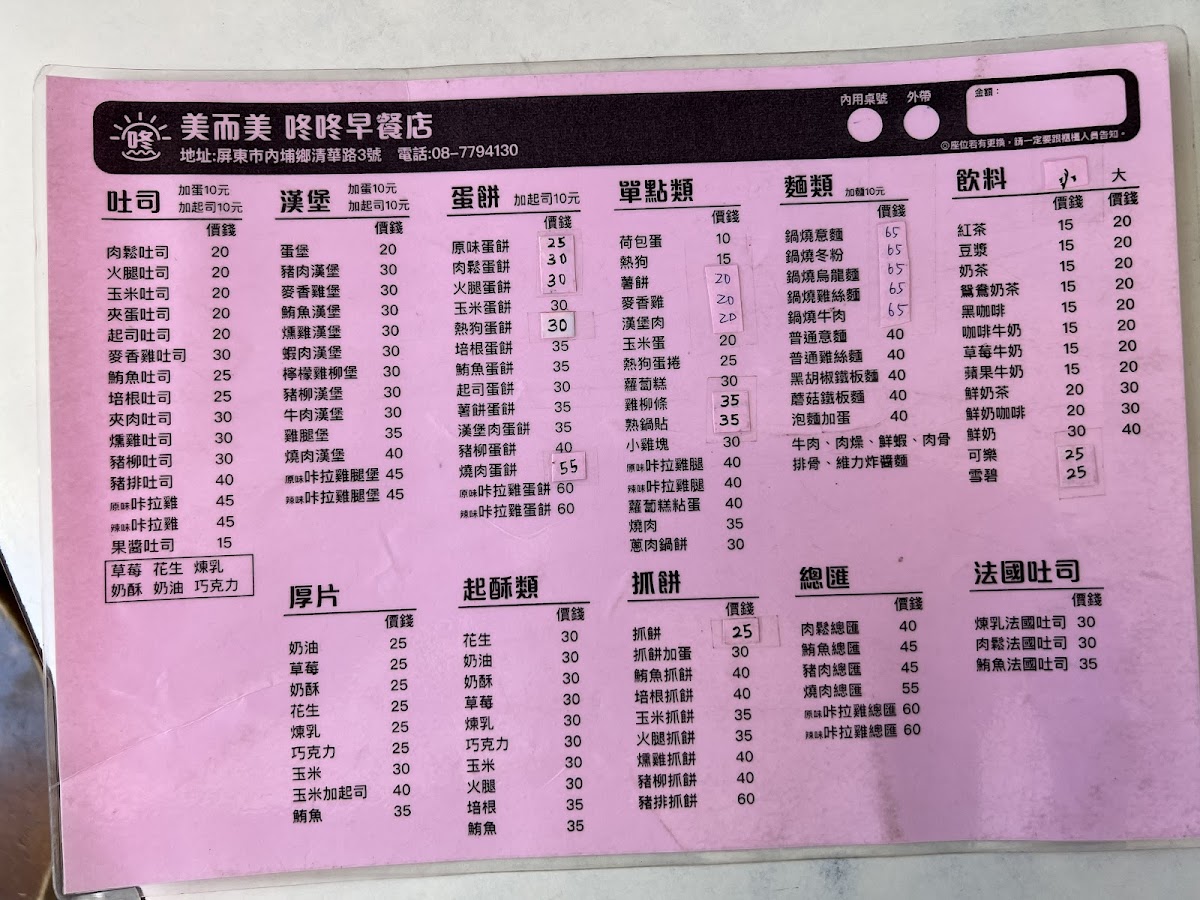 咚
美而美 咚咚早餐店
地址:屏東市內埔鄉清華路3號 電話:08-7794130
內用桌號 外帶
金額：
◎座位若有更換，請一定要跟櫃檯人員告知。
吐司 加蛋10元
加起司10元
價錢
肉鬆吐司 20
火腿吐司 20
玉米吐司 20
夾蛋吐司 20
起司吐司 20
麥香雞吐司 30
鮪魚吐司 25
培根吐司 25
夾肉吐司 30
燻雞吐司 30
豬柳吐司 30
豬排吐司 40
原味咔拉雞 45
辣味咔拉雞 45
果醬吐司 15
草莓 花生 煉乳
奶酥 奶油 巧克力
漢堡 加蛋10元
加起司10元
價錢
蛋堡 20
豬肉漢堡 30
麥香雞堡 30
鮪魚漢堡 30
燻雞漢堡 30
蝦肉漢堡 30
檸檬雞柳堡 30
豬柳漢堡 30
牛肉漢堡 30
雞腿堡 35
燒肉漢堡 40
原味咔拉雞腿堡 45
辣味咔拉雞腿堡 45
蛋餅 加起司10元
價錢
原味蛋餅 25
肉鬆蛋餅 30
火腿蛋餅 30
玉米蛋餅 30
熱狗蛋餅 30
培根蛋餅 35
鮪魚蛋餅 35
起司蛋餅 30
薯餅蛋餅 35
漢堡肉蛋餅 35
豬柳蛋餅 40
燒肉蛋餅 55
原味咔拉雞蛋餅 60
辣味咔拉雞蛋餅 60
單點類
價錢
荷包蛋 10
熱狗 15
薯餅 20
麥香雞 20
漢堡肉 20
玉米蛋 20
熱狗蛋捲 25
蘿蔔糕 30
雞柳條 35
熟鍋貼 35
小雞塊 30
原味咔拉雞腿 40
辣味咔拉雞腿 40
蘿蔔糕粘蛋 40
燒肉 35
蔥肉鍋餅 30
麵類 加麵10元
價錢
鍋燒意麵 65
鍋燒冬粉 65
鍋燒烏龍麵 65
鍋燒雞絲麵 65
鍋燒牛肉 65
普通意麵 40
普通雞絲麵 40
黑胡椒鐵板麵 40
蘑菇鐵板麵 40
泡麵加蛋 40
牛肉、肉燥、鮮蝦、肉骨
排骨、維力炸醬麵
飲料 小 大
價錢 價錢
紅茶 15 20
豆漿 15 20
奶茶 15 20
鴛鴦奶茶 15 20
黑咖啡 15 20
咖啡牛奶 15 20
草莓牛奶 15 20
蘋果牛奶 15 20
鮮奶茶 20 30
鮮奶咖啡 20 30
鮮奶 30 40
可樂 25
雪碧 25
厚片
價錢
奶油 25
草莓 25
奶酥 25
花生 25
煉乳 25
巧克力 25
玉米 30
玉米加起司 40
鮪魚 35
起酥類
價錢
花生 30
奶油 30
奶酥 30
草莓 30
煉乳 30
巧克力 30
玉米 30
火腿 30
培根 35
鮪魚 35
抓餅
價錢
抓餅 25
抓餅加蛋 30
鮪魚抓餅 40
培根抓餅 40
玉米抓餅 35
火腿抓餅 35
燻雞抓餅 40
豬柳抓餅 40
豬排抓餅 60
總匯
價錢
肉鬆總匯 40
鮪魚總匯 45
豬肉總匯 45
燒肉總匯 55
原味咔拉雞總匯 60
辣味咔拉雞總匯 60
法國吐司
價錢
煉乳法國吐司 30
肉鬆法國吐司 30
鮪魚法國吐司 35